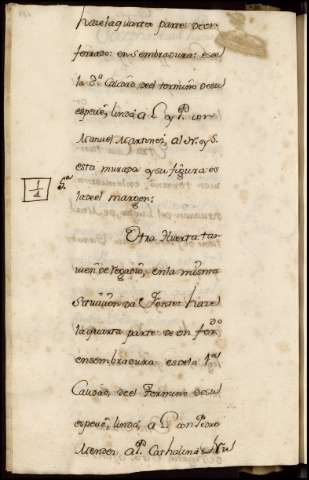 haze la quarta parte de un
ferrado: en sembradura: es de
la 3ª Calidad del termino de su
espevie, linda a L y P. con
Manuel Martinez, al N. y S.
esta murada y su figura es
la del margen:
1/4 3ª
Otra Huerta tam
vien de regadio, en la misma
Situazion da Fonte: haze
la quarta parte de un ferdo
ensembradura es de la 1ª
Calidad del Termino de su
espevie, linda, a L con Pedro
Mendez a P. Cathalina